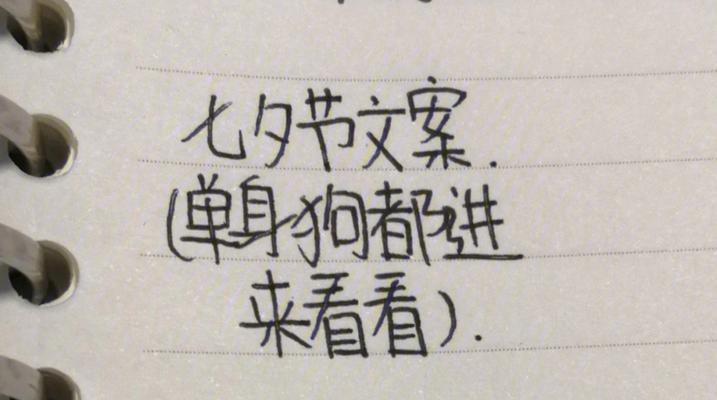 七夕节文案.
(单身狗都进
来看看).